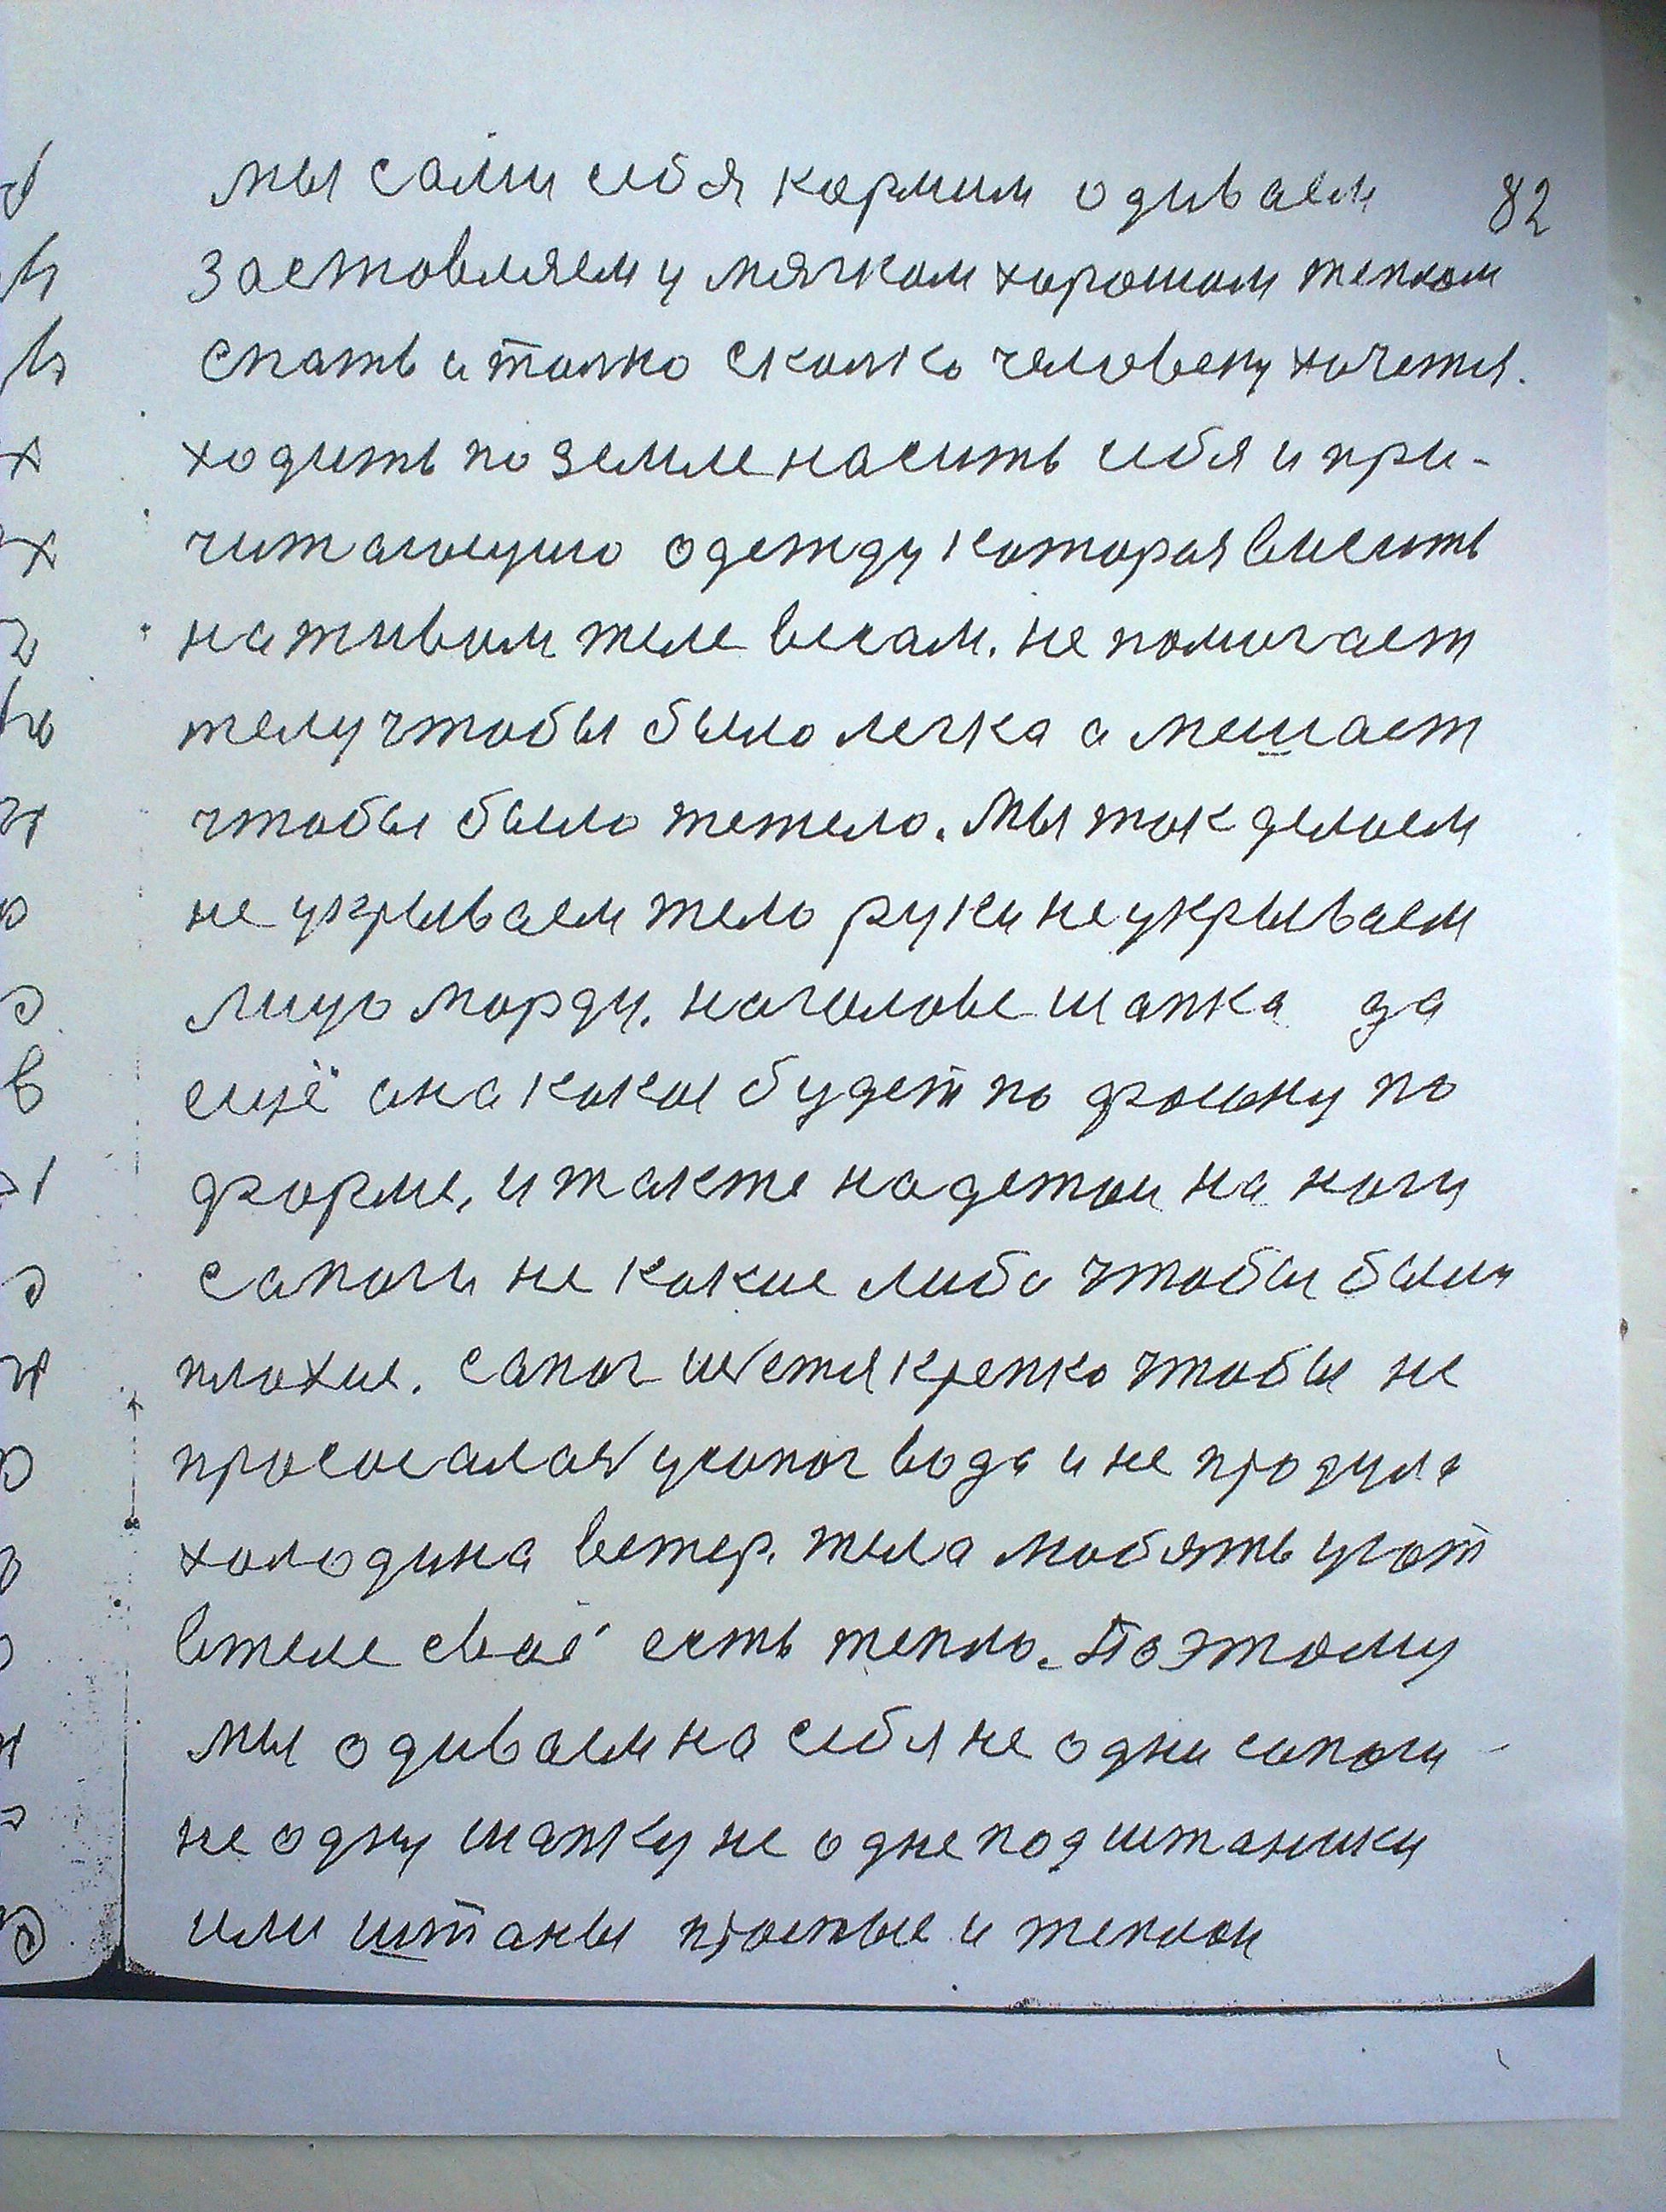 мы сами себя кормим одиваем 82
зостовляем у мягком хорошом теплом
спать и толко сколко человеку хочется.
ходить по земле насить себя и при-
читающию одежду которая висить
на живом теле весам. не помогает
телу чтобы было легка а мешает
чтобы было тежело. Мы так делаем
не укрываем тело руки не укрываем
лицо морду. на голове шапка да
ещё она какая будет по фасону по
форме, и также надетои на ноги
сапоги не какие либо чтобы были
плохие. сапог шется крепко чтобы не
просасалась у сапог вода и не продул
холодина ветер. тела любять уют
в теле своё есть тепло. Поэтому
мы одиваем на себя не одни сапоги
не одну шапку не одне подштаники
или штаны простые и теплои